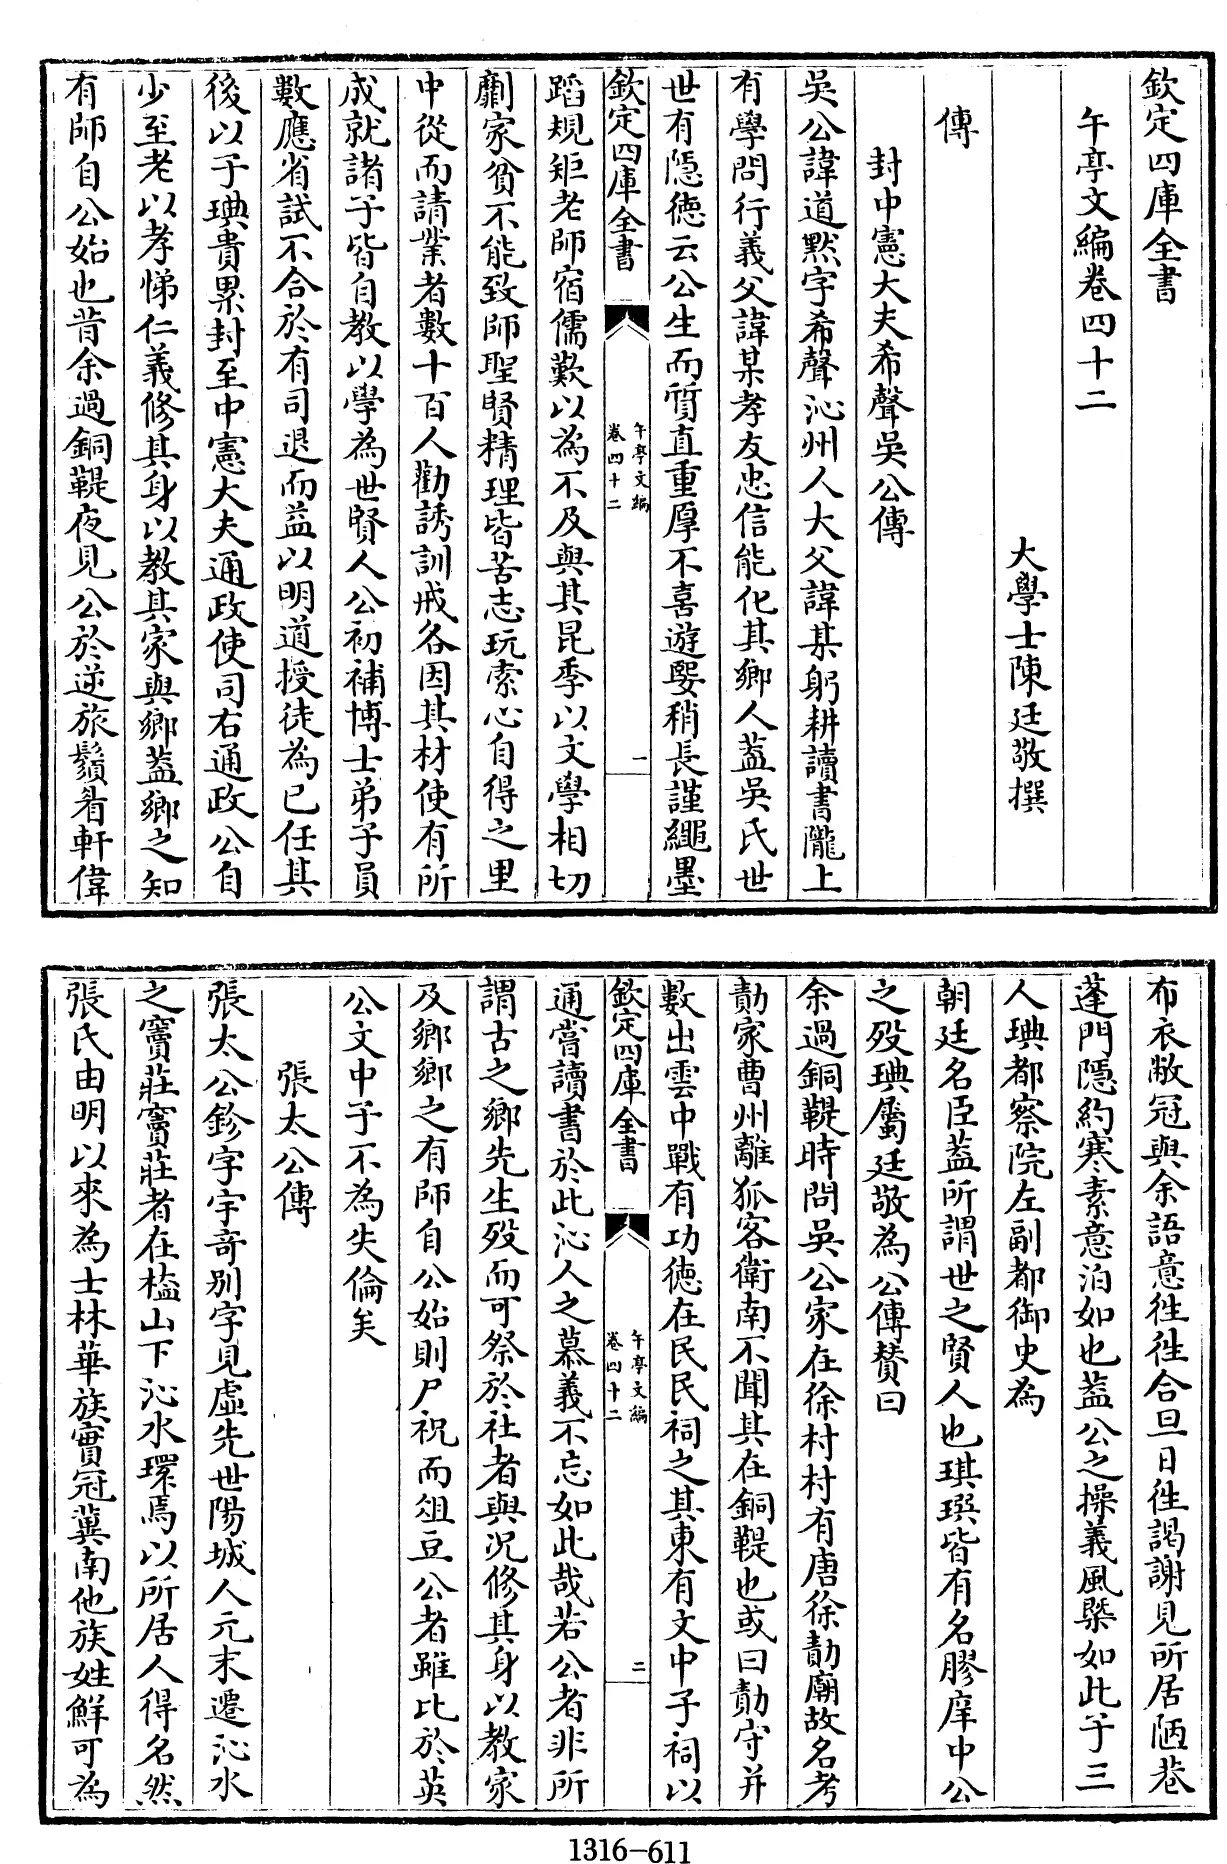 欽定四庫全書
午亭文編卷四十二
大學士陳廷敬撰
傳
封中憲大夫希聲吳公傳
吳公諱道默字希聲沁州人大父諱某躬耕讀書隴上
有學問行義父諱某孝友忠信能化其鄉人蓋吳氏世
世有隱德云公生而質直重厚不喜遊嬉稍長謹繩墨
欽定四庫全書
午亭文編
卷四十二
一
蹈規矩老師宿儒歎以為不及與其昆季以文學相切
劘家貧不能致師聖賢精理皆苦志玩索心自得之里
中從而請業者數十百人勸誘訓戒各因其材使有所
成就諸子皆自教以學為世賢人公初補博士弟子員
數應省試不合於有司退而益以明道授徒為已任其
後以子琠貴累封至中憲大夫通政使司右通政公自
少至老以孝悌仁義修其身以教其家與鄉蓋鄉之知
有師自公始也昔余過銅鞮夜見公於逆旅鬚眉軒偉
布衣敝冠與余語意徃徃合旦日徃謁謝見所居陋巷
蓬門隱約寒素意泊如也蓋公之操義風槩如此子三
人琠都察院左副都御史為
朝廷名臣蓋所謂世之賢人也琪瑛皆有名膠庠中公
之歿琠屬廷敬為公傳贊曰
余過銅鞮時問吳公家在徐村村有唐徐勣廟故名考
勣家曹州離狐客衛南不聞其在銅鞮也或曰勣守并
數出雲中戰有功德在民民祠之其東有文中子祠以
欽定四庫全書
午亭文編
卷四十二
二
通嘗讀書於此沁人之慕義不忘如此哉若公者非所
謂古之鄉先生歿而可祭於社者與況修其身以教家
及鄉鄉之有師自公始則尸祝而俎豆公者雖比於英
公文中子不為失倫矣
張太公傳
張太公鉁字宇奇別字見虛先世陽城人元末遷沁水
之竇莊竇莊者在榼山下沁水環焉以所居人得名然
張氏由明以來為士林華族實冠冀南他族姓鮮可為
1316-611